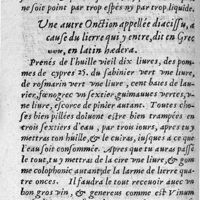 ne soit point par trop espés ny par trop liquide.
Une autre Onction appellée diacissu, a
cause du lierre qui y entre, dit en Grec
, en latin hædera.
Prenés de l'huille vieil dix liures, des pom-
mes de cypres 25. du sabinier vert vne liure,
de rosmarin vert vne liure, cent bases de lau-
rier, fœnogrec vn sextier, guimauues vertes, v-
ne liure, escorce de pinier autant. Toutes cho-
ses bien pillées doiuent estre bien trampées en
trois sextiers d'eau, par trois iours, apres tu y
mettras ton huille, & le cuiras, iusques a ce que
l'eau soit consommée. Apres que tu auras passé
le tout, tu y mettras de la cire vne liure, & gom-
me colophonie autant, de la larme de lierre quat-
re onces. Il faudra le tout receuoir auec vn
bon gros vin, & genereux comme est Vinum